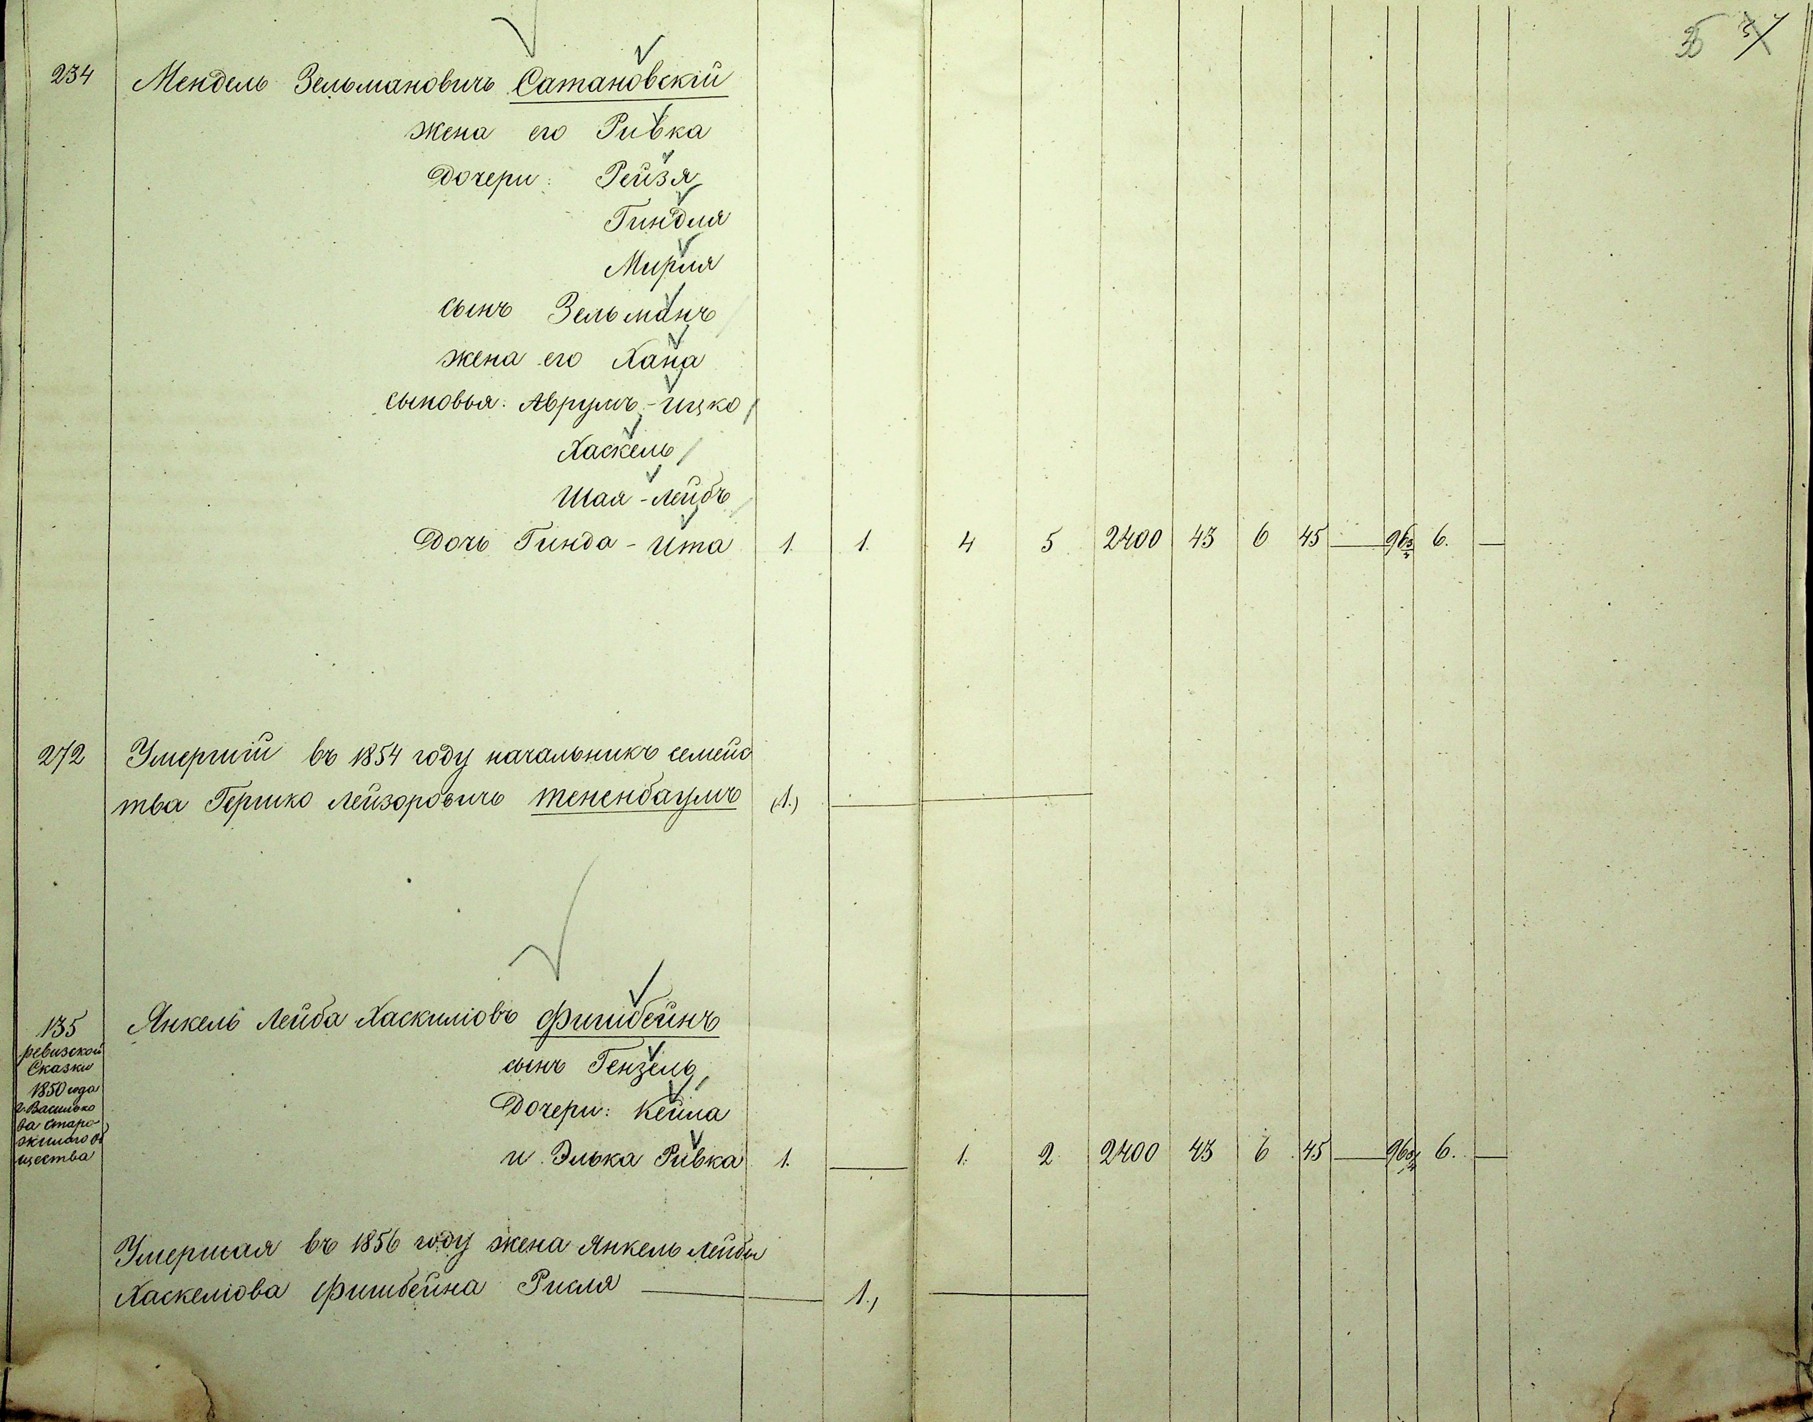 234 Мендель Зельмановичъ Сатановскій
жена его Ривка
Дочери: Рейзя
Гиндля
Мирля
сынъ Зельманъ
жена его Хана
сыновья: Аврумъ-Ицко
Хаскель
Шая-Лейбъ
Дочь Гинда-Ита 1. 1. 4 5 2400 43 6 45 — 96 6. —
272 Умершій въ 1854 году начальникъ семейс
тва Гершко Лейзоровичъ Тененбаумъ (1.)
135 Янкель Лейба Хаскиліовъ Фишбейнъ
ревизской
Сказки
1850 года
г. Василько
ва старо
жилаго об
щества
сынъ Гензель
Дочери: Кейла
и Элька Ривка 1. — 1. 2 2400 43 6 45 — 96 6. —
Умершая въ 1856 году жена Янкель Лейбы
Хаскеліова Фишбейна Рисля — 1.,